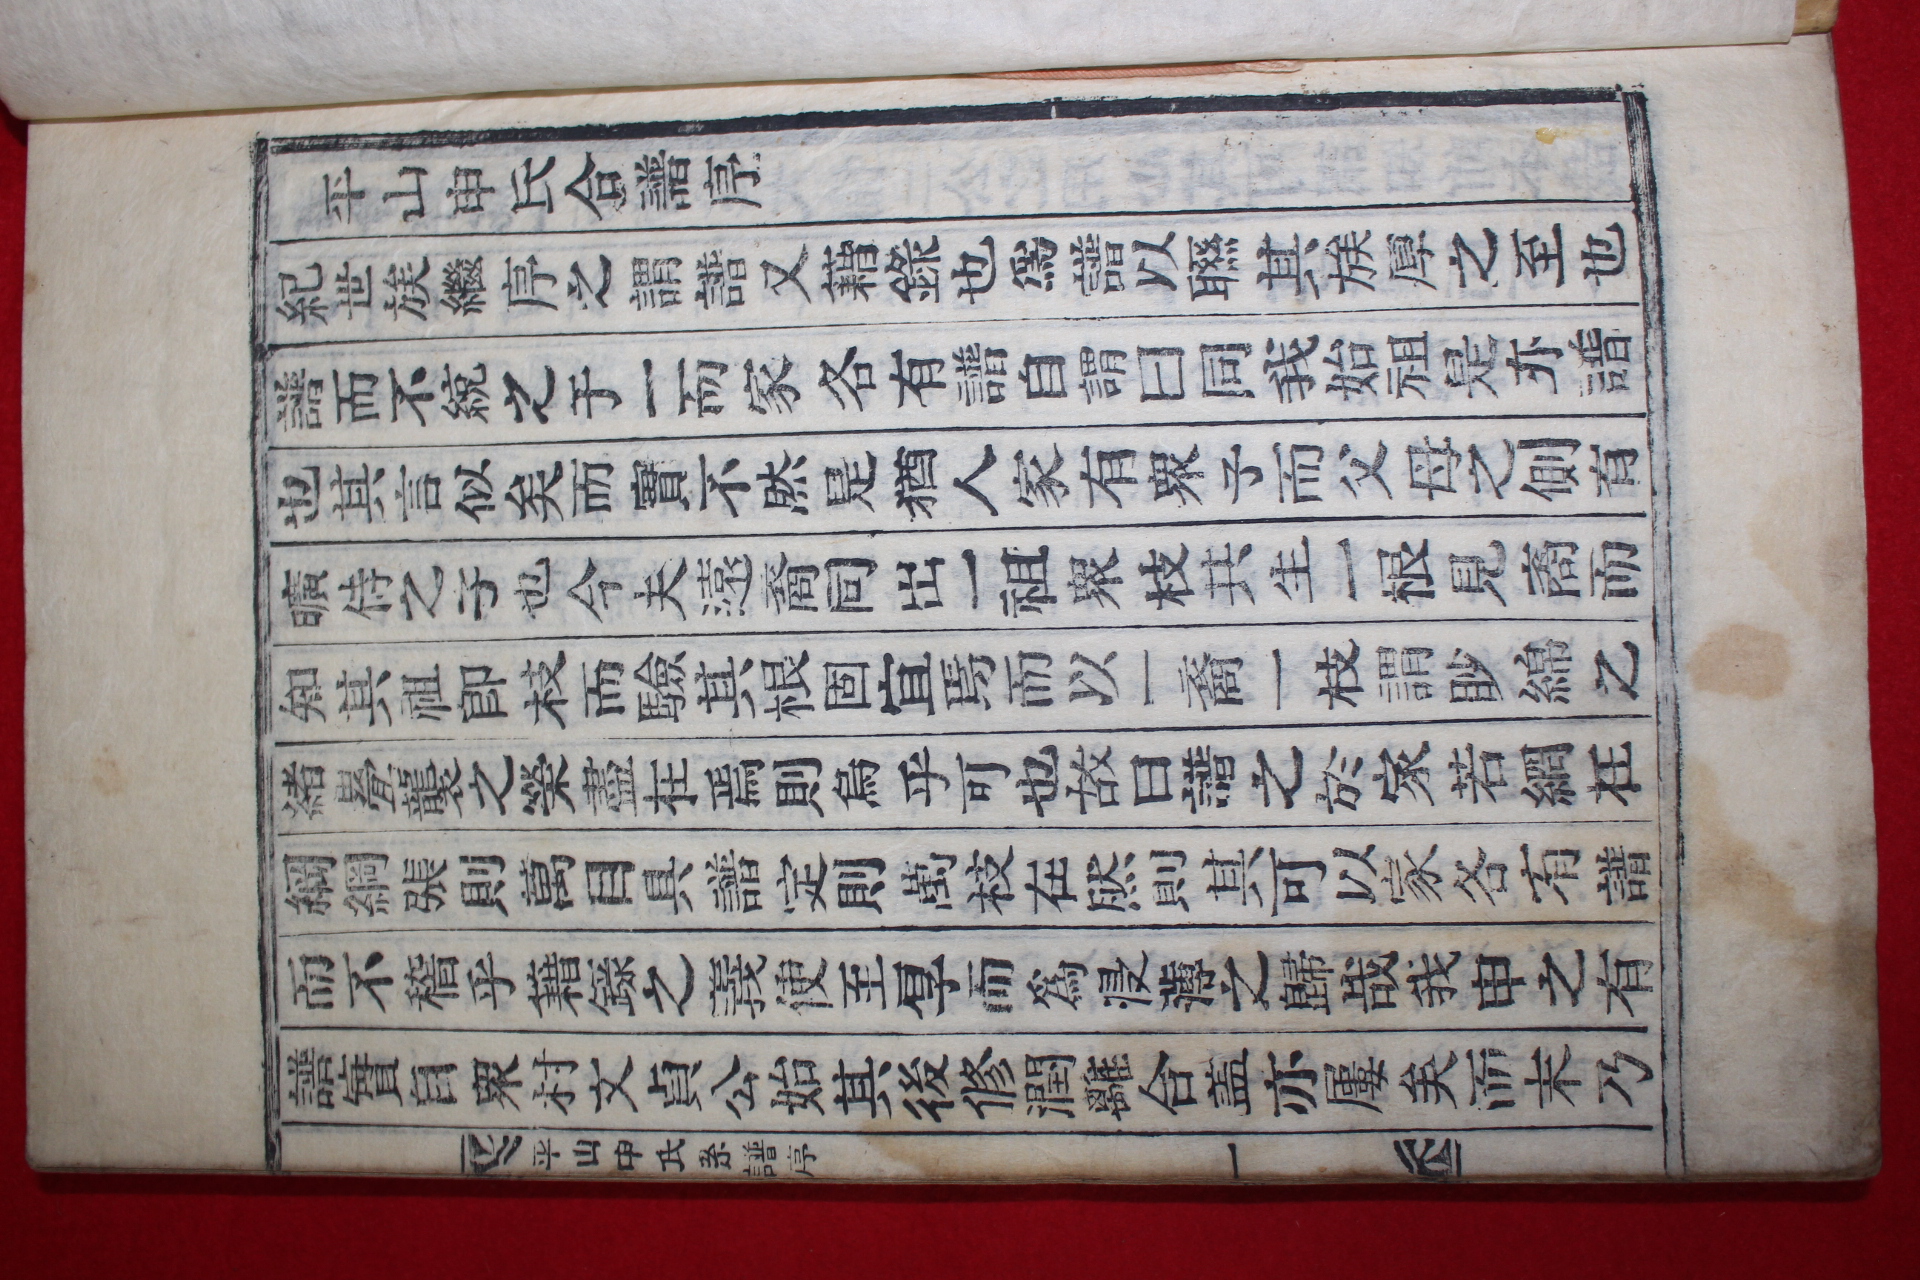 平山申氏合譜序
紀世族繼序之謂譜又藉錄也爲譜以聯其族厚之至也
譜而不統之于一而家各有譜自謂曰同我始祖是亦譜
也其言似矣而實不然是猶人家有衆子而父母之側有
曠侍之子也今夫遠裔同出一祖衆枝共生一根見裔而
知其祖即枝而驗其根固宜焉而以一裔一枝謂貤綿之
緖疊襲之榮盡在焉則焉乎可也故曰譜之於家若網在
綱綱張則萬目具譜定則萬枝在然則其可以家各有譜
而不稽乎藉錄之義使至厚而爲寖薄之歸哉我申之有
譜實自象村文貞公始其後修潤離合盖亦屢矣而未乃
平山申氏系譜序 一